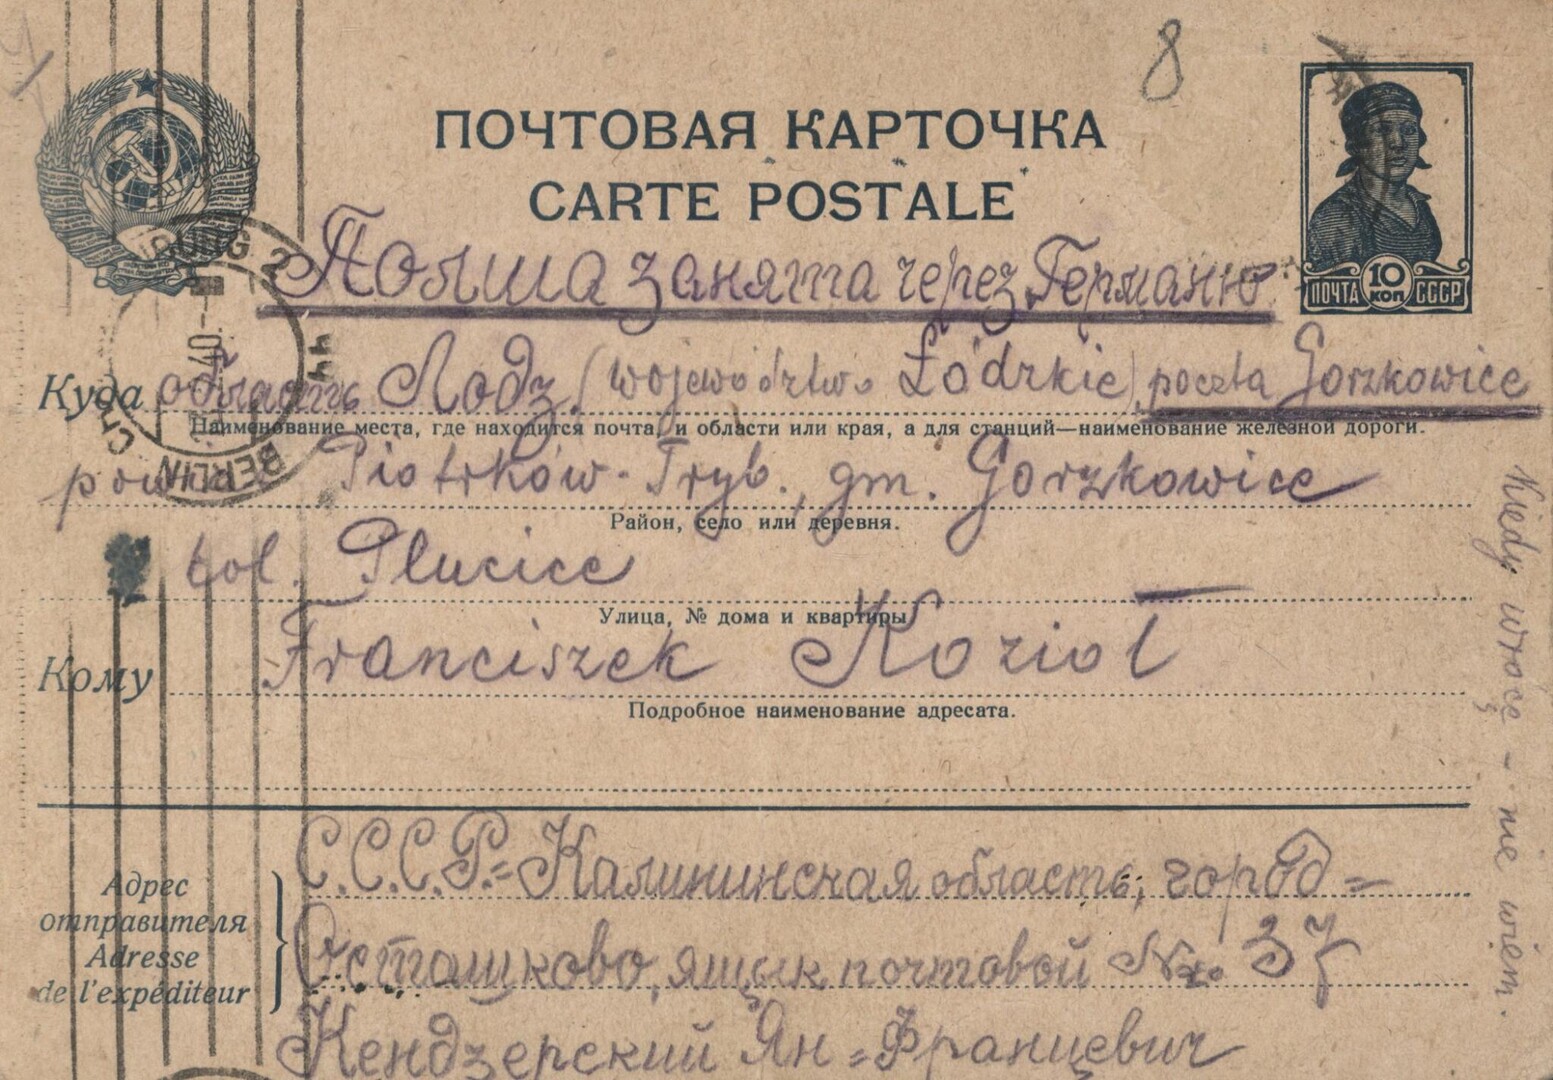 8
ПОЧТОВАЯ КАРТОЧКА
CARTE POSTALE
10 КОП
ПОЧТА СССР
Польша занята через Германю
Куда область Лодз, (województwo Łódzkie), poczta Gorzkowice
Наименование места, где находится почта, и области или края, а для станций—наименование железной дороги.
powiat Piotrków-Tryb., gm. Gorzkowice
Район, село или деревня.
kol. Plucice
Улица, № дома и квартиры
Кому Franciszek Kozioł
Подробное наименование адресата.
Адрес отправителя
Adresse de l'expéditeur
С.С.С.Р.=Калининская область, город=
Осташково, ящык почтовой № 37
Кендзерский Ян=Францевич
Kiedy wrócę - nie wiem.
BERLIN
40
44